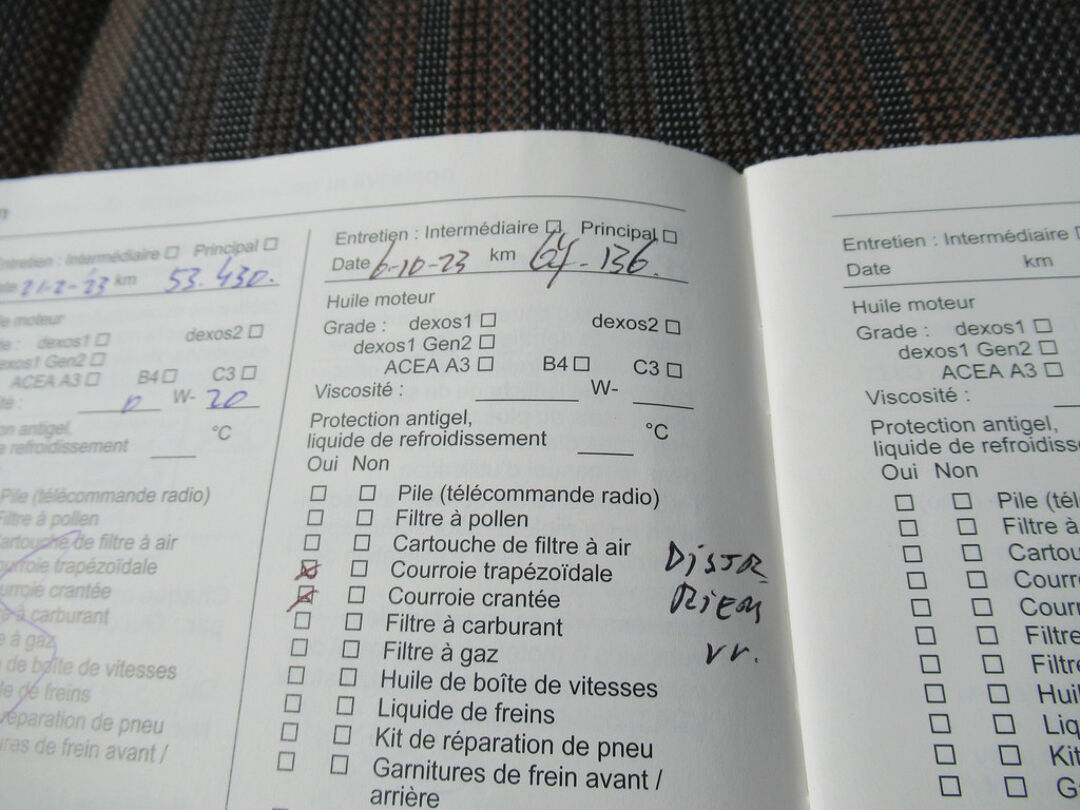 Entretien : Intermédiaire ☐ Principal ☐
21-2-23 km 53.430.
dexos1 ☐ dexos2 ☐
Gen2 ☐
ACEA A3 ☐ B4 ☐ C3 ☐
0 W- 20
antigel,
refroidissement °C
Pile (télécommande radio)
Filtre à pollen
Cartouche de filtre à air
Courroie trapézoïdale
crantée
à carburant
à gaz
de boîte de vitesses
de freins
réparation de pneu
de frein avant /
Entretien : Intermédiaire ☐ Principal ☐
Date 6-10-23 km 64-136.
Huile moteur
Grade : dexos1 ☐ dexos2 ☐
dexos1 Gen2 ☐
ACEA A3 ☐ B4 ☐ C3 ☐
Viscosité : W-
Protection antigel,
liquide de refroidissement °C
Oui Non
☐ ☐ Pile (télécommande radio)
☐ ☐ Filtre à pollen
☐ ☐ Cartouche de filtre à air
☒ ☐ Courroie trapézoïdale DISTR
☒ ☐ Courroie crantée RIEM
☐ ☐ Filtre à carburant
☐ ☐ Filtre à gaz vr.
☐ ☐ Huile de boîte de vitesses
☐ ☐ Liquide de freins
☐ ☐ Kit de réparation de pneu
☐ ☐ Garnitures de frein avant /
arrière
Entretien : Intermédiaire
Date km
Huile moteur
Grade : dexos1 ☐
dexos1 Gen2 ☐
ACEA A3 ☐
Viscosité :
Protection antigel,
liquide de
Oui Non
☐ ☐ Pile
☐ ☐ Filtre à
☐ ☐
☐ ☐
☐ ☐
☐ ☐ Filtre
☐ ☐
☐ ☐
☐ ☐
☐ ☐ Kit
☐ ☐